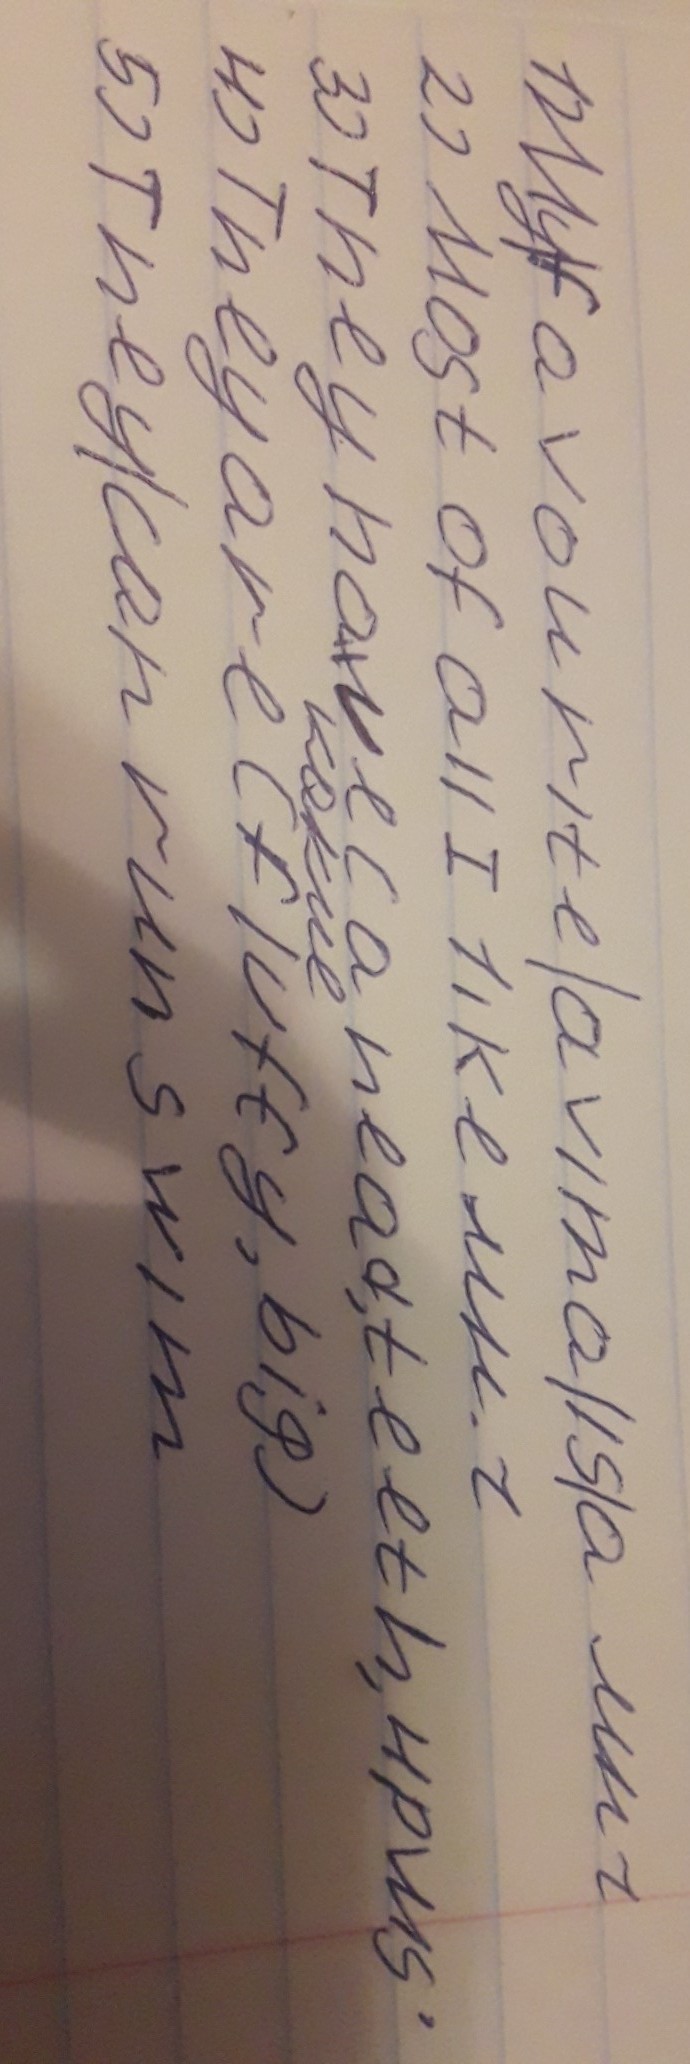 1) My favourite avimal is a мит
2) Most of all I like мит
3) They have (a head, teeth,
какие
4) They are (fluffy, big)
5) They can run swim